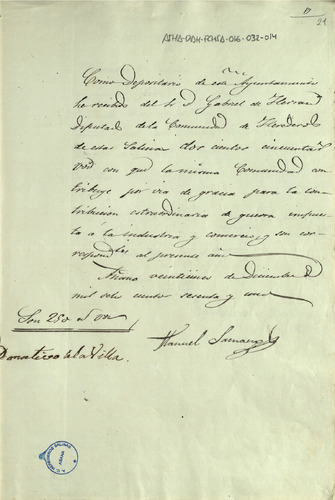 11
21
ATHA-DAH-FCHSA-016-032-014
Como Depositario de este Ayuntamiento
he recibido del Sr D. Gabriel de Herran
Diputado de la Comunidad de Herederos
de estas Salinas dos cientos cincuenta rs
von con que la misma Comunidad con
tribuye por via de gracia para la con
tribucion estraordinaria de guerra impues
ta á la industria y comercio, y son cor
respond.tes al presente año
Añana veintiuno de Diciembre de
mil ocho cientos y
Son 250 rs von
Manuel
Donativo a la Villa